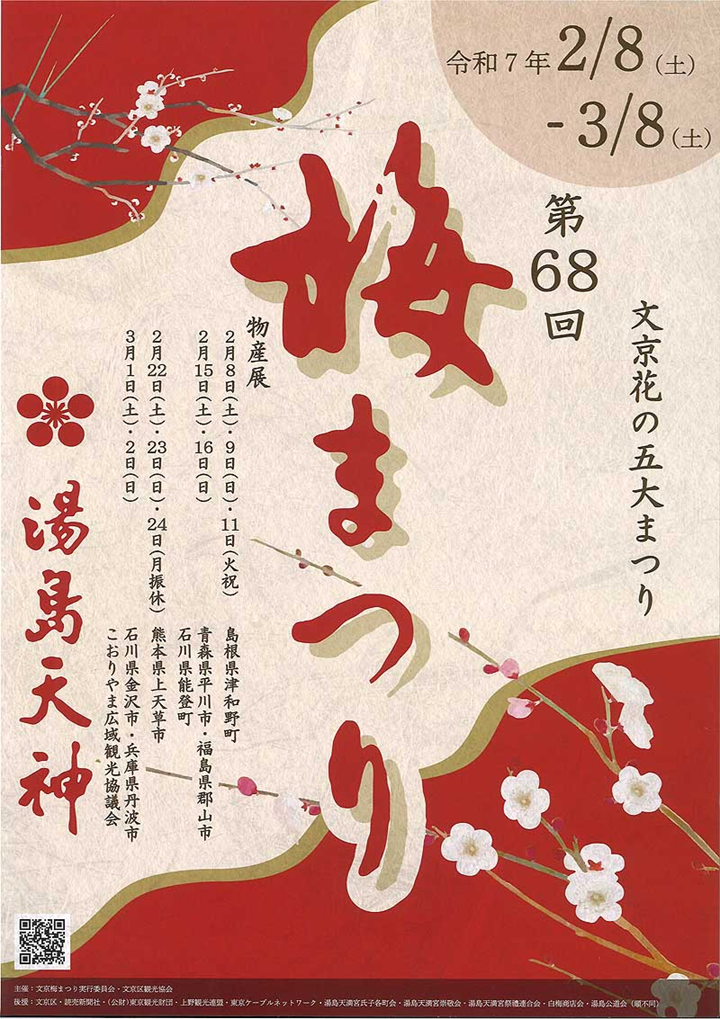 令和7年2/8(土)
-3/8(土)
第68回
文京花の五大まつり
梅まつり
物産展
2月8日(土)・9日(日)・11日(火祝) 島根県津和野町
2月15日(土)・16日(日) 青森県平川市・福島県郡山市
石川県能登町
2月22日(土)・23日(日)・24日(月振休) 熊本県上天草市
3月1日(土)・2日(日) 石川県金沢市・兵庫県丹波市
こおりやま広域観光協議会
湯島天神
主催:文京梅まつり実行委員会・文京区観光協会
後援:文京区・読売新聞社・(公財)東京観光財団・上野観光連盟・東京ケーブルネットワーク・湯島天満宮氏子各町会・湯島天満宮崇敬会・湯島天満宮祭禮連合会・白梅商店会・湯島公道会(順不同)